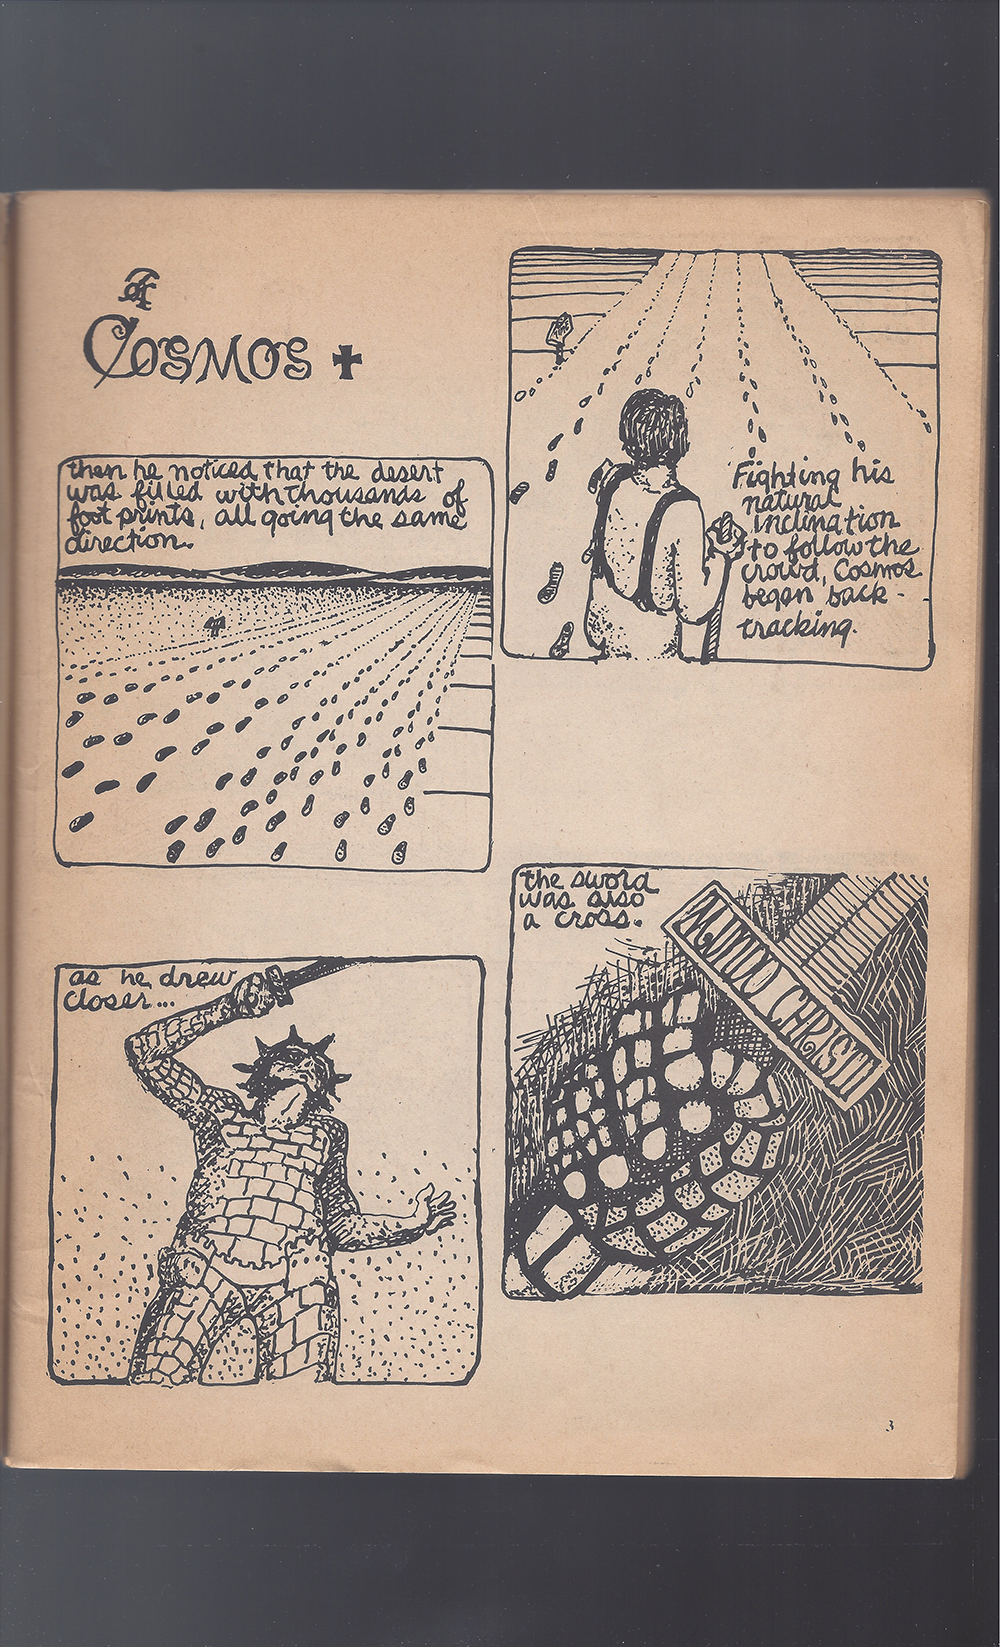 COSMOS
then he noticed that the desert
was filled with thousands of
foot prints, all going the same
direction.
Fighting his
natural
inclination
to follow the
crowd, Cosmos
began back-
tracking.
as he drew
closer...
the sword
was also
a cross.
MUNDO CHRISTI
3